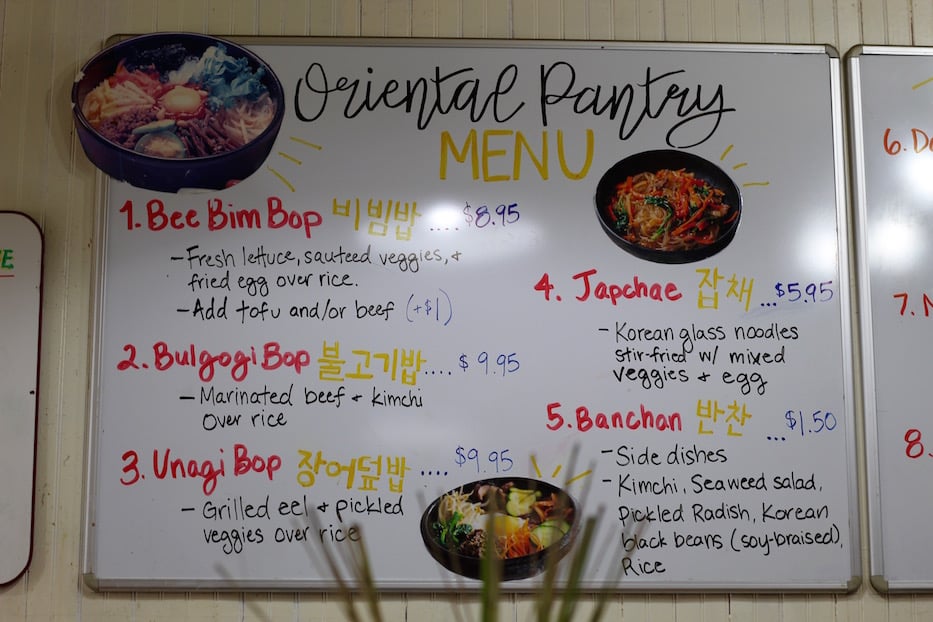 Oriental Pantry
MENU
1. Bee Bim Bop 비빔밥 .... $8.95
- Fresh lettuce, sauteed veggies, &
fried egg over rice.
- Add tofu and/or beef (+$1)
2. Bulgogi Bop 불고기밥.... $9.95
- Marinated beef & kimchi
over rice
3. Unagi Bop 장어덮밥 .... $9.95
- Grilled eel & pickled
veggies over rice
4. Japchae 잡채 ...$5.95
- Korean glass noodles
stir-fried w/ mixed
veggies & egg
5. Banchan 반찬 ... $1.50
- Side dishes
- Kimchi, Seaweed salad,
Pickled Radish, Korean
black beans (soy-braised),
Rice
6.
7.
8.